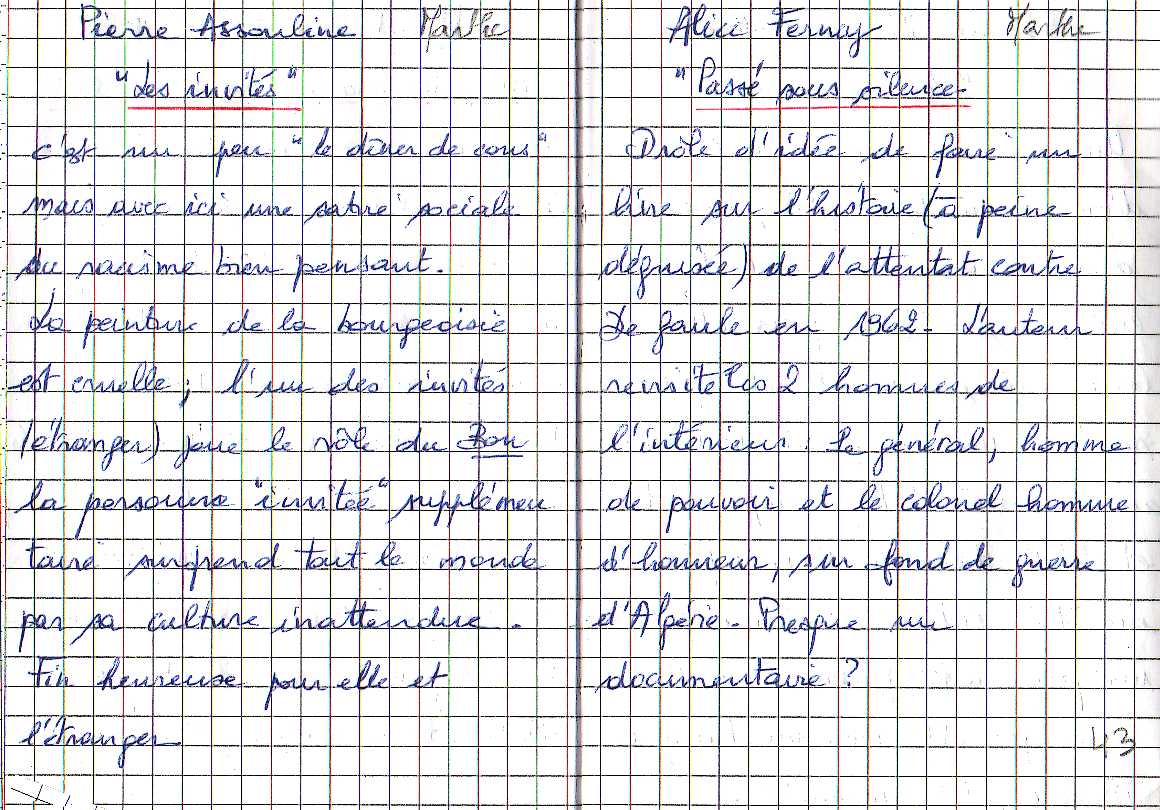 Pierre Assouline Marthe
"Les invités"
c'est un peu "le dîner de cons"
mais avec ici une satire sociale
du racisme bien pensant.
La peinture de la bourgeoisie
est cruelle; l'un des invités
(étranger) joue le rôle du Bon
la personne "invitée" supplémen
taire surprend tout le monde
par sa culture inattendue.
Fin heureuse pour elle et
l'étranger
Alice Ferney Marthe
"Passé sous silence
Drôle d'idée de faire un
livre sur l'histoire (à peine
déguisée) de l'attentat contre
De Gaule en 1962. L'auteur
revisite les 2 hommes de
l'intérieur. Le général, homme
de pouvoir et le colonel homme
d'honneur, sur fond de guerre
d'Algérie. Presque un
documentaire?
43